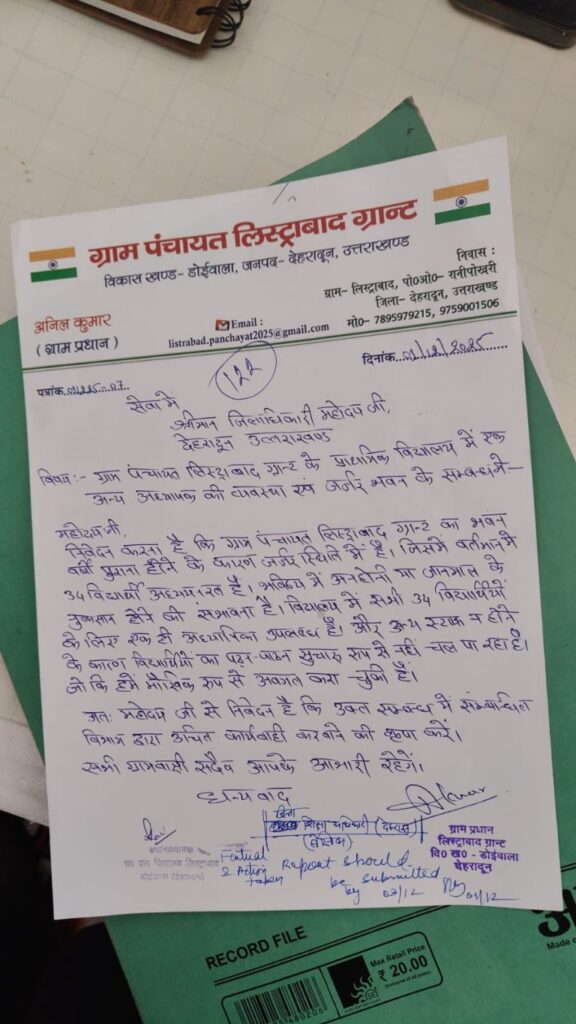 ग्राम पंचायत लिस्ट्राबाद ग्रान्ट
विकास खण्ड- डोईवाला, जनपद- देहरादून, उत्तराखण्ड
अनिल कुमार
( ग्राम प्रधान )
Email :
listrabad.panchayat2025@gmail.com
निवास :
ग्राम- लिस्ट्राबाद, पो0ओ0- रानीपोखरी
जिला- देहरादून, उत्तराखण्ड
मो0- 7895979215, 9759001506
पत्रांक
दिनांक 01/12/2025
122
सेवा में
श्रीमान जिलाधिकारी महोदय जी,
देहरादून उत्तराखण्ड
विषय:- ग्राम पंचायत लिस्ट्राबाद ग्रान्ट के प्राथमिक विद्यालय में एक
अन्य अध्यापक की व्यवस्था एवं जर्जर भवन के सम्बन्ध में-
महोदय जी,
निवेदन करना है कि ग्राम पंचायत लिस्ट्राबाद ग्रान्ट का भवन
वर्षो पुराना होने के कारण जर्जर स्थिति में है। जिसमें वर्तमान में
34 विद्यार्थी अध्ययनरत है। भविष्य में अनहोनी या जानमाल के
नुकसान होने की संभावना है। विद्यालय में सभी 34 विद्यार्थियों
के लिए एक ही अध्यापिका उपलब्ध है। और अन्य स्टाफ न होने
के कारण विद्यार्थियों का पठन-पाठन सुचारू रूप से नहीं चल पा रहा है।
जो कि हमें मौखिक रूप से अवगत करा चुकी है।
अतः महोदय जी से निवेदन है कि उक्त सम्बन्ध में सम्बन्धित
विभाग द्वारा उचित कार्यवाही करवाने की कृपा करें।
सभी ग्रामवासी सदैव आपके आभारी रहेगें।
धन्यवाद
जिला
शिक्षा अधिकारी
ग्राम प्रधान
लिस्ट्राबाद ग्रान्ट
वि0 ख0 - डोईवाला
देहरादून
प्रधानाध्यापक
रा0 प्रा0 विद्यालय लिस्ट्राबाद
डोईवाला (देहरादून)
Factual
& Action
taken
Report should
be submitted
by 03/12
01/12
RECORD FILE
Max Retail Price
₹ 20.00
(Inclusive of all taxes)
Made